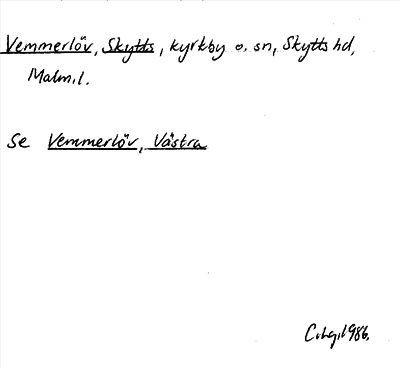 Vemmerlöv, Skytts, kyrkby o. sn, Skytts hd,
Malm.l.
Se Vemmerlöv, Västra
1986.